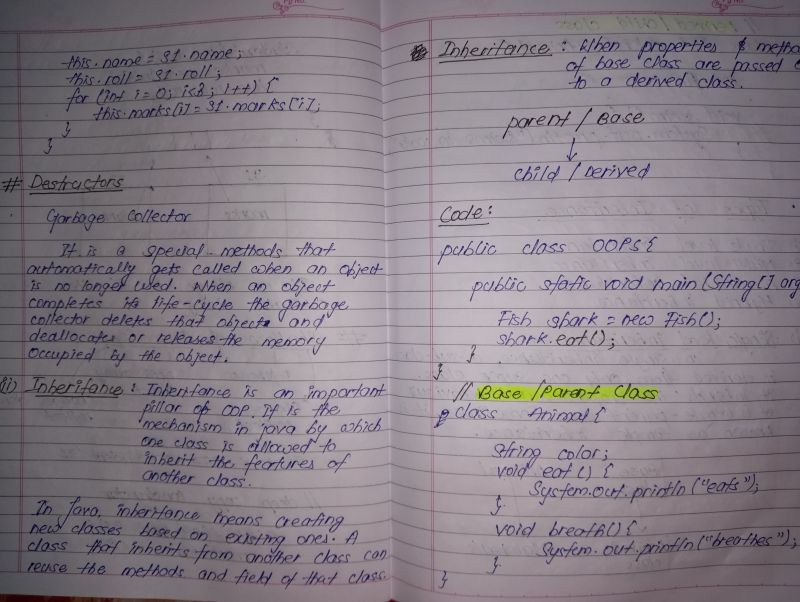 this.name = s1.name;
this.roll = s1.roll;
for (int i=0; i<3; i++) {
this.marks[i] = s1.marks[i];
}
}
# Destructors
Garbage Collector
It is a special methods that
automatically gets called when an object
is no longer used. When an object
completes its life-cycle the garbage
collector deletes that object and
deallocates or releases the memory
occupied by the object.
(ii) Inheritance : Inheritance is an important
pillar of OOP. It is the
mechanism in java by which
one class is allowed to
inherit the features of
another class.
In Java, inheritance means creating
new classes based on existing ones. A
class that inherits from another class can
reuse the methods and field of that class
Inheritance : When properties & metho
of base class are passed
to a derived class.
parent / Base
↓
child / Derived
Code :
public class OOPS {
public static void main (String[] arg
Fish shark = new Fish();
shark.eat();
}
}
// Base / Parent Class
class Animal {
String color;
void eat () {
System.out.println ("eats");
}
void breath() {
System.out.println ("breathes");
}
}